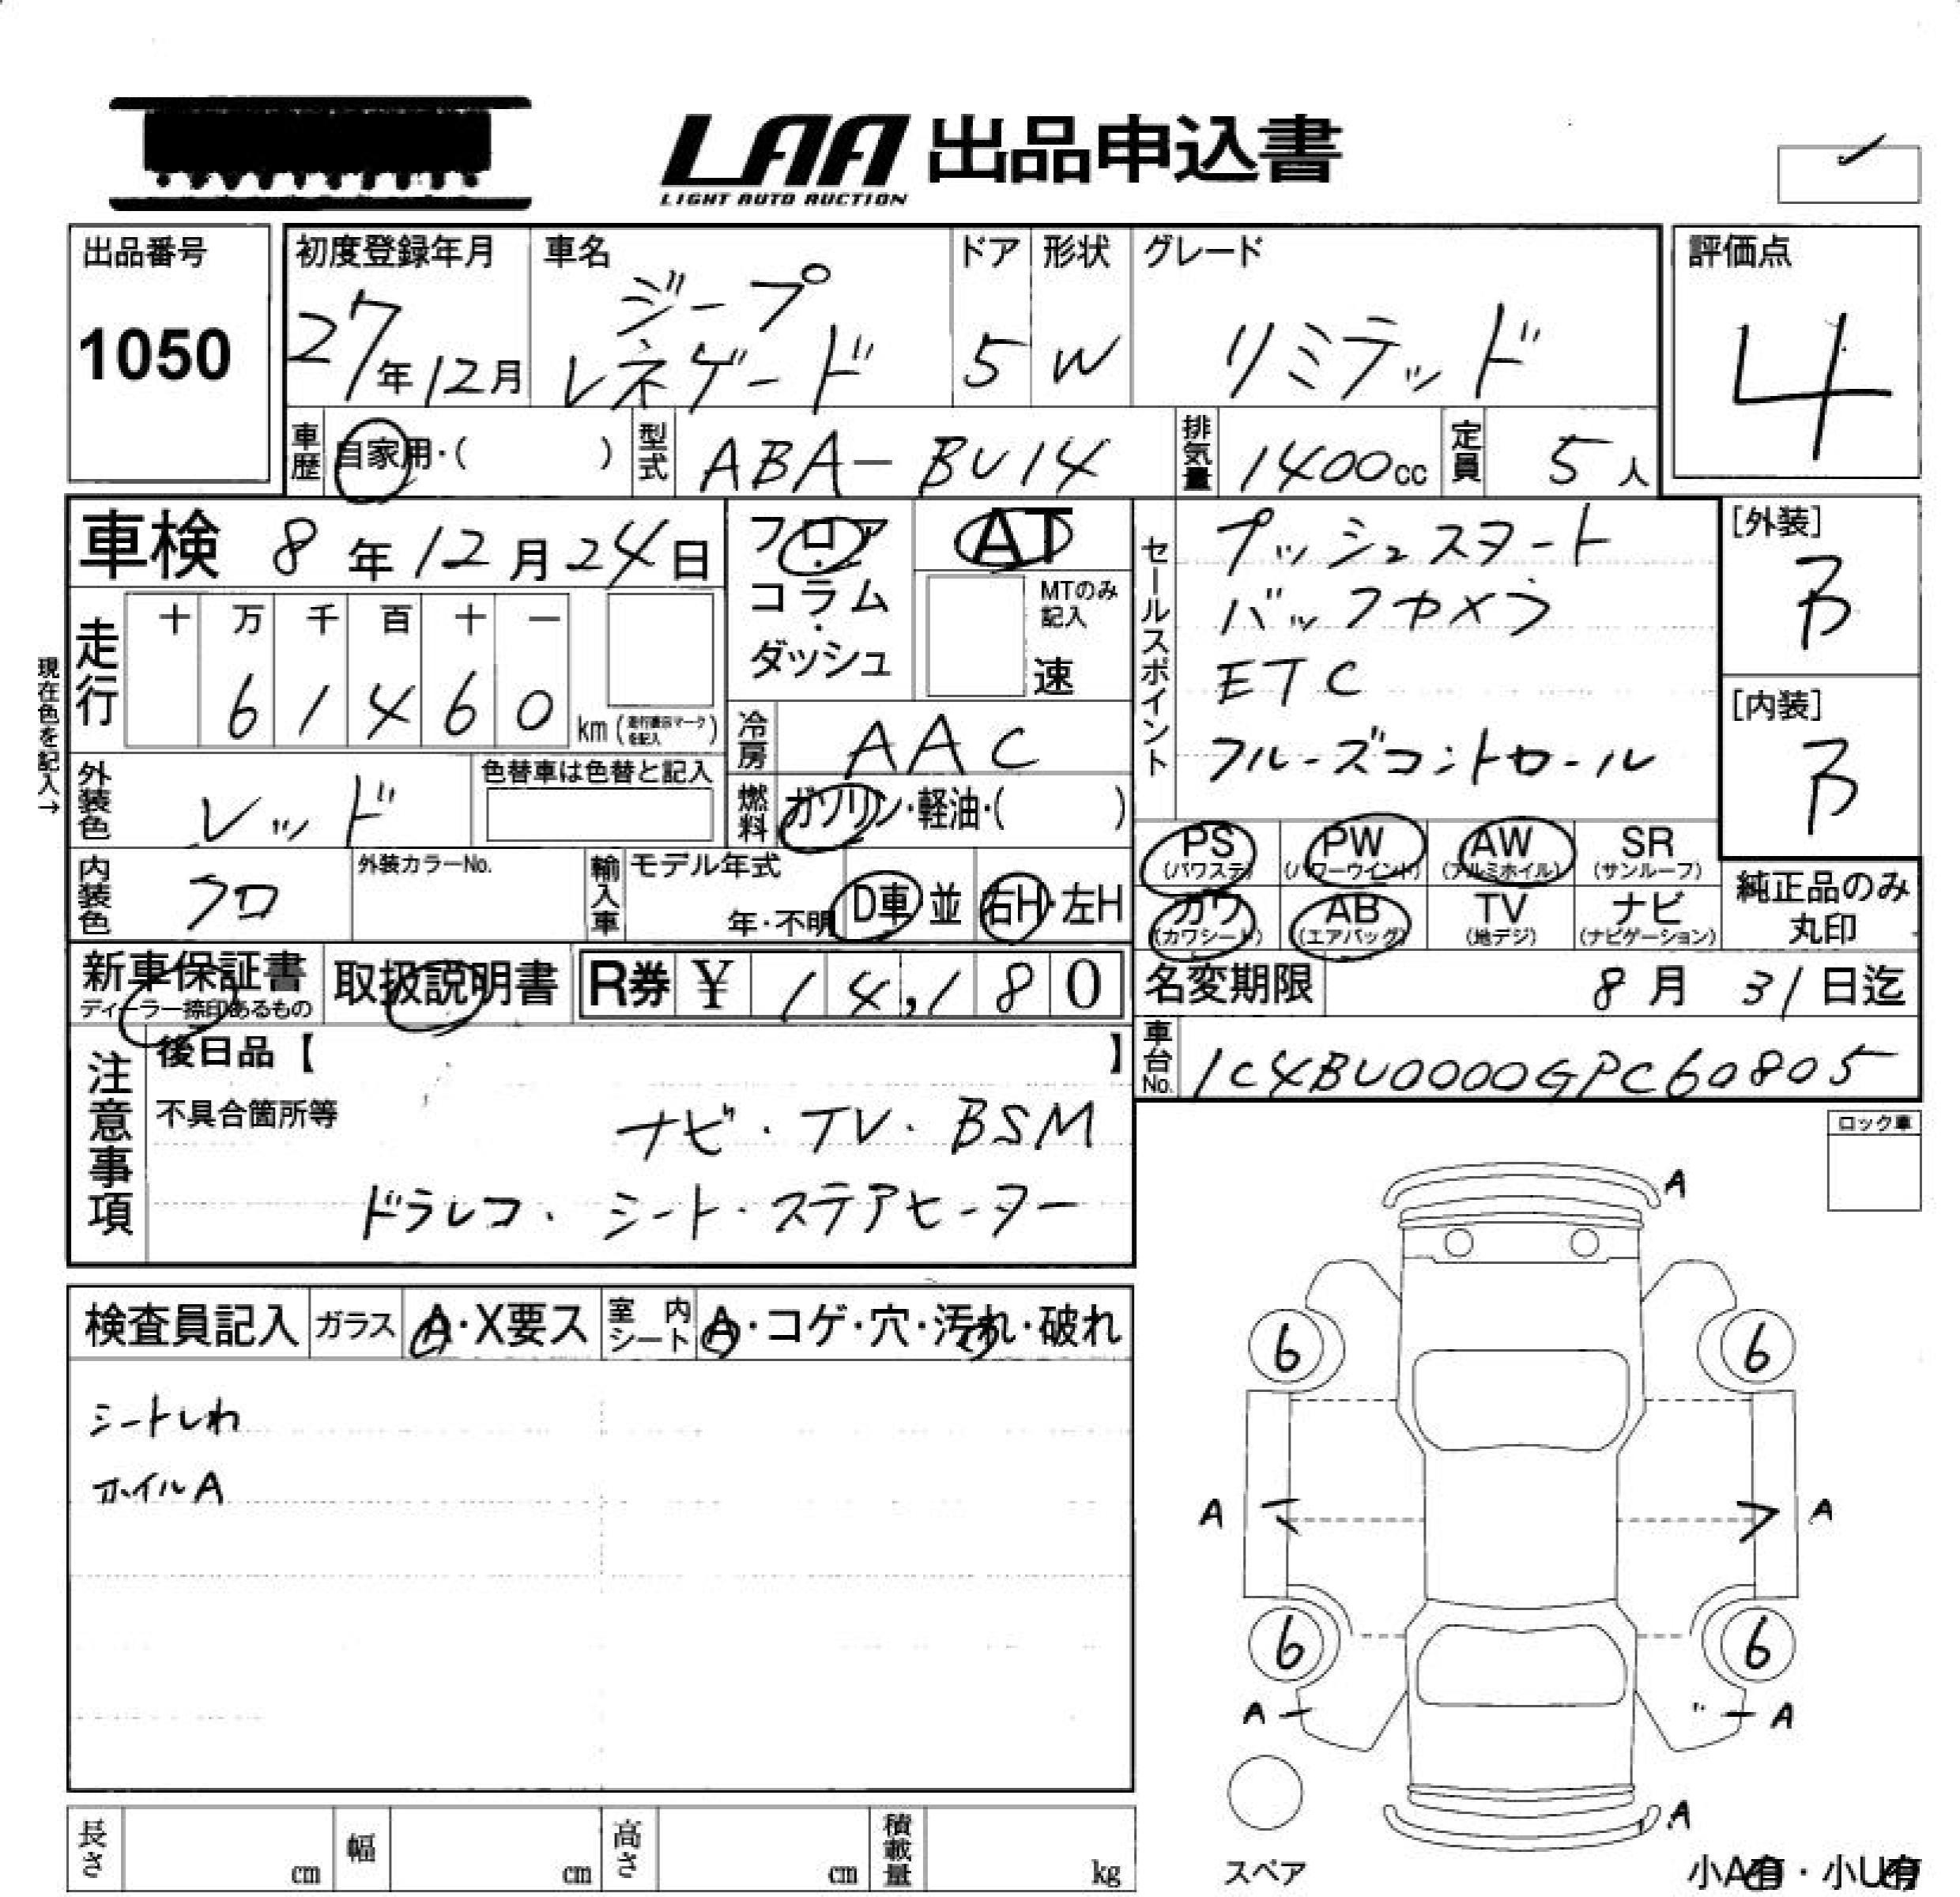 LAA 出品申込書
LIGHT AUTO AUCTION
出品番号
1050
初度登録年月
27年12月
車名
ジープ
レネゲード
ドア
5
形状
W
グレード
リミテッド
評価点
4
車歴 自家用・( )
型式 ABA-BU14
排気量 1400cc
定員 5人
車検 8年12月24日
フロア
・
コラム
・
ダッシュ
AT
MTのみ
記入
速
走行
十 万 千 百 十 一
6 1 4 6 0 km (走行表示マークを記入)
現在色を記入→
外装色 レッド
色替車は色替と記入
冷房 AAC
燃料 ガソリン・軽油・( )
内装色 クロ
外装カラーNo.
輸入車 モデル年式
年・不明
D車 並
右H・左H
セールスポイント
プッシュスタート
バックカメラ
ETC
クルーズコントロール
[外装]
B
[内装]
B
PS (パワステ)
PW (パワーウインド)
AW (アルミホイル)
SR (サンルーフ)
カワ (カワシート)
AB (エアバッグ)
TV (地デジ)
ナビ (ナビゲーション)
純正品のみ
丸印
新車保証書
ディーラー捺印あるもの
取扱説明書
R券 ¥ 14,180
名変期限 8月31日迄
車台No. 1C4BU0000GPC60805
注意事項
後日品【 】
不具合箇所等
ナビ・TV・BSM
ドラレコ・シート・ステアヒーター
ロック車
検査員記入
ガラス A・X要ス
室内シート A・コゲ・穴・汚れ・破れ
シートしわ
ホイルA
A
6 6
A A
6 6
A A
A
スペア
小A有・小U有
長さ cm
幅 cm
高さ cm
積載量 kg